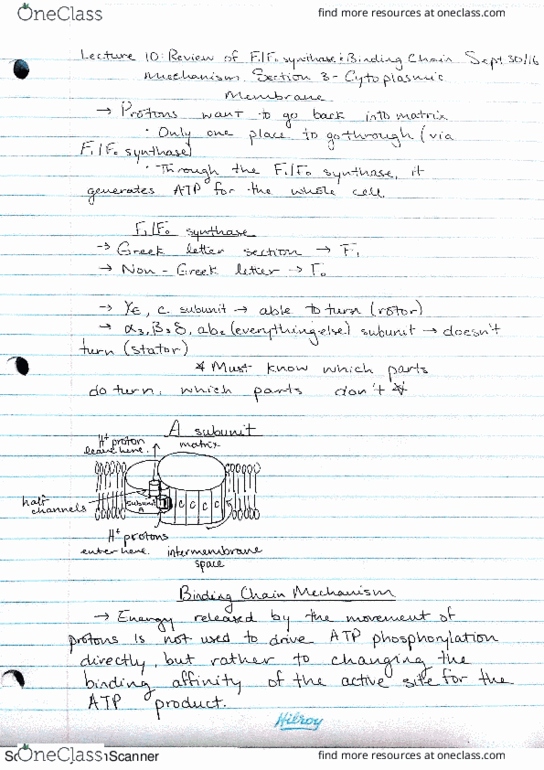 OneClass
find more resources at oneclass.com
Lecture 10: Review of F1/F0 synthase: Binding Chain Sept 30/16
Mechanism. Section 3 - Cytoplasmic
Membrane
→ Protons want to go back into matrix
· Only one place to go through (via
F1/F0 synthase)
· Through the F1/F0 synthase, it
generates ATP for the whole cell.
F1/F0 synthase
→ Greek letter section → F1
→ Non-Greek letter → F0
→ γε, c. subunit → able to turn (rotor)
→ α3, β3 δ, ab2 (everything else) subunit → doesn't
turn (stator)
* Must know which parts
do turn, which parts don't *
A subunit
H+ proton
leave here.
matrix
half
channels
subunit
A
c c c c
H+ protons
enter here.
intermembrane
space
Binding Chain Mechanism
→ Energy released by the movement of
protons is not used to drive ATP phosphorylation
directly, but rather to changing the
binding affinity of the active site for the
ATP product.
Hilroy
OneClass
Scanner
find more resources at oneclass.com